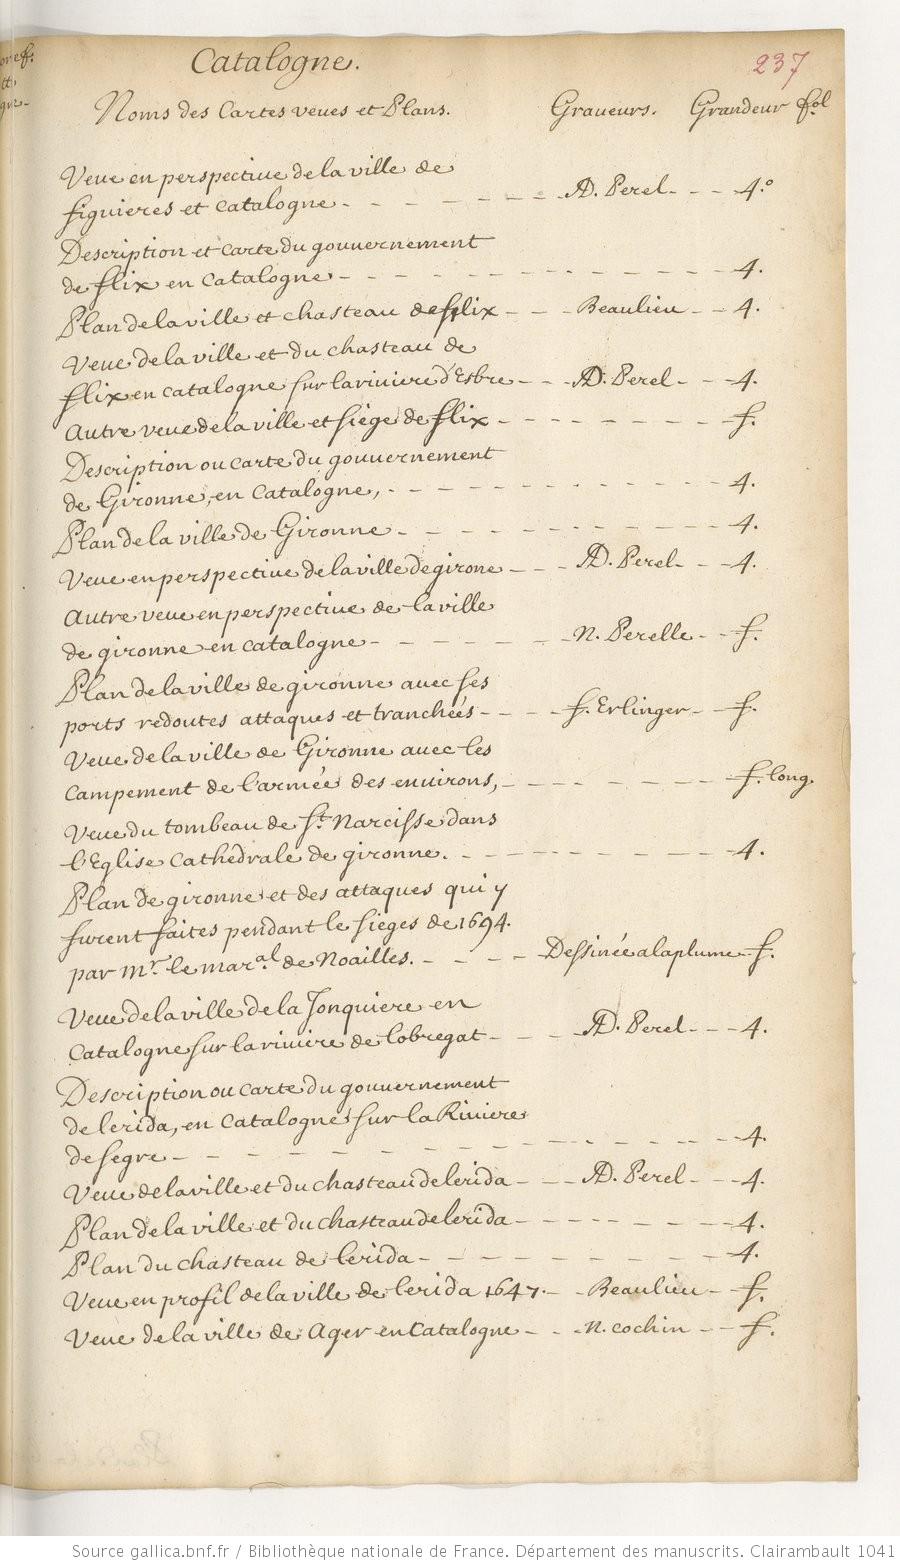 Catalogne.
237
Noms des Cartes veues et Plans. Graveurs. Grandeur fol
Veue en perspective de la ville de
figuieres et catalogne - - - - - - - AD. Perel - - - 4.º
Description et carte du gouuernement
de flix en catalogne - - - - - - - - - - - - 4.
Plan de la ville et chasteau de flix - - - Beaulieu - - 4.
Veue de la ville et du chasteau de
flix en catalogne sur la riuiere d'Esbre - - AD. Perel - - - 4.
Autre veue de la ville et siége de flix - - - - - - - - f.
Description ou carte du gouuernement
de Gironne, en Catalogne, - - - - - - - - - - - 4.
Plan de la ville de Gironne - - - - - - - - - - - 4.
Veue en perspectiue de la ville de girone - - - AD. Perel - - - 4.
Autre veue en perspectiue de la ville
de gironne en catalogne - - - - - - - N. Perelle - - f.
Plan de la ville de gironne auec ses
ports redoutes attaques et tranchées - - - - f. Erlinger - - f.
Veue de la ville de Gironne auec les
campement de l'armée des enuirons, - - - - - - - f. long.
Veue du tombeau de St. Narcisse dans
l'Eglise Cathedrale de gironne. - - - - - - - - - 4.
Plan de gironne et des attaques qui y
furent faites pendant le sieges de 1694.
par Mr. le maral. de Noailles. - - - - Dessinée a la plume - f.
Veue de la ville de la Jonquiere en
Catalogne sur la riuiere de lobregat - - - - AD. Perel - - - 4.
Description ou carte du gouuernement
de lerida, en Catalogne sur la Riuiere
de segre - - - - - - - - - - - - - - 4.
Veue de la ville et du chasteau de lerida - - - AD. Perel - - - 4.
Plan de la ville et du chasteau de lerida - - - - - - - - 4.
Plan du chasteau de lerida - - - - - - - - - 4.
Veue en profil de la ville de lerida 1647. - - Beaulieu - - f.
Veue de la ville de Ager en Catalogne - - - N. cochin - - - f.
Source gallica.bnf.fr / Bibliothèque nationale de France. Département des manuscrits. Clairambault 1041